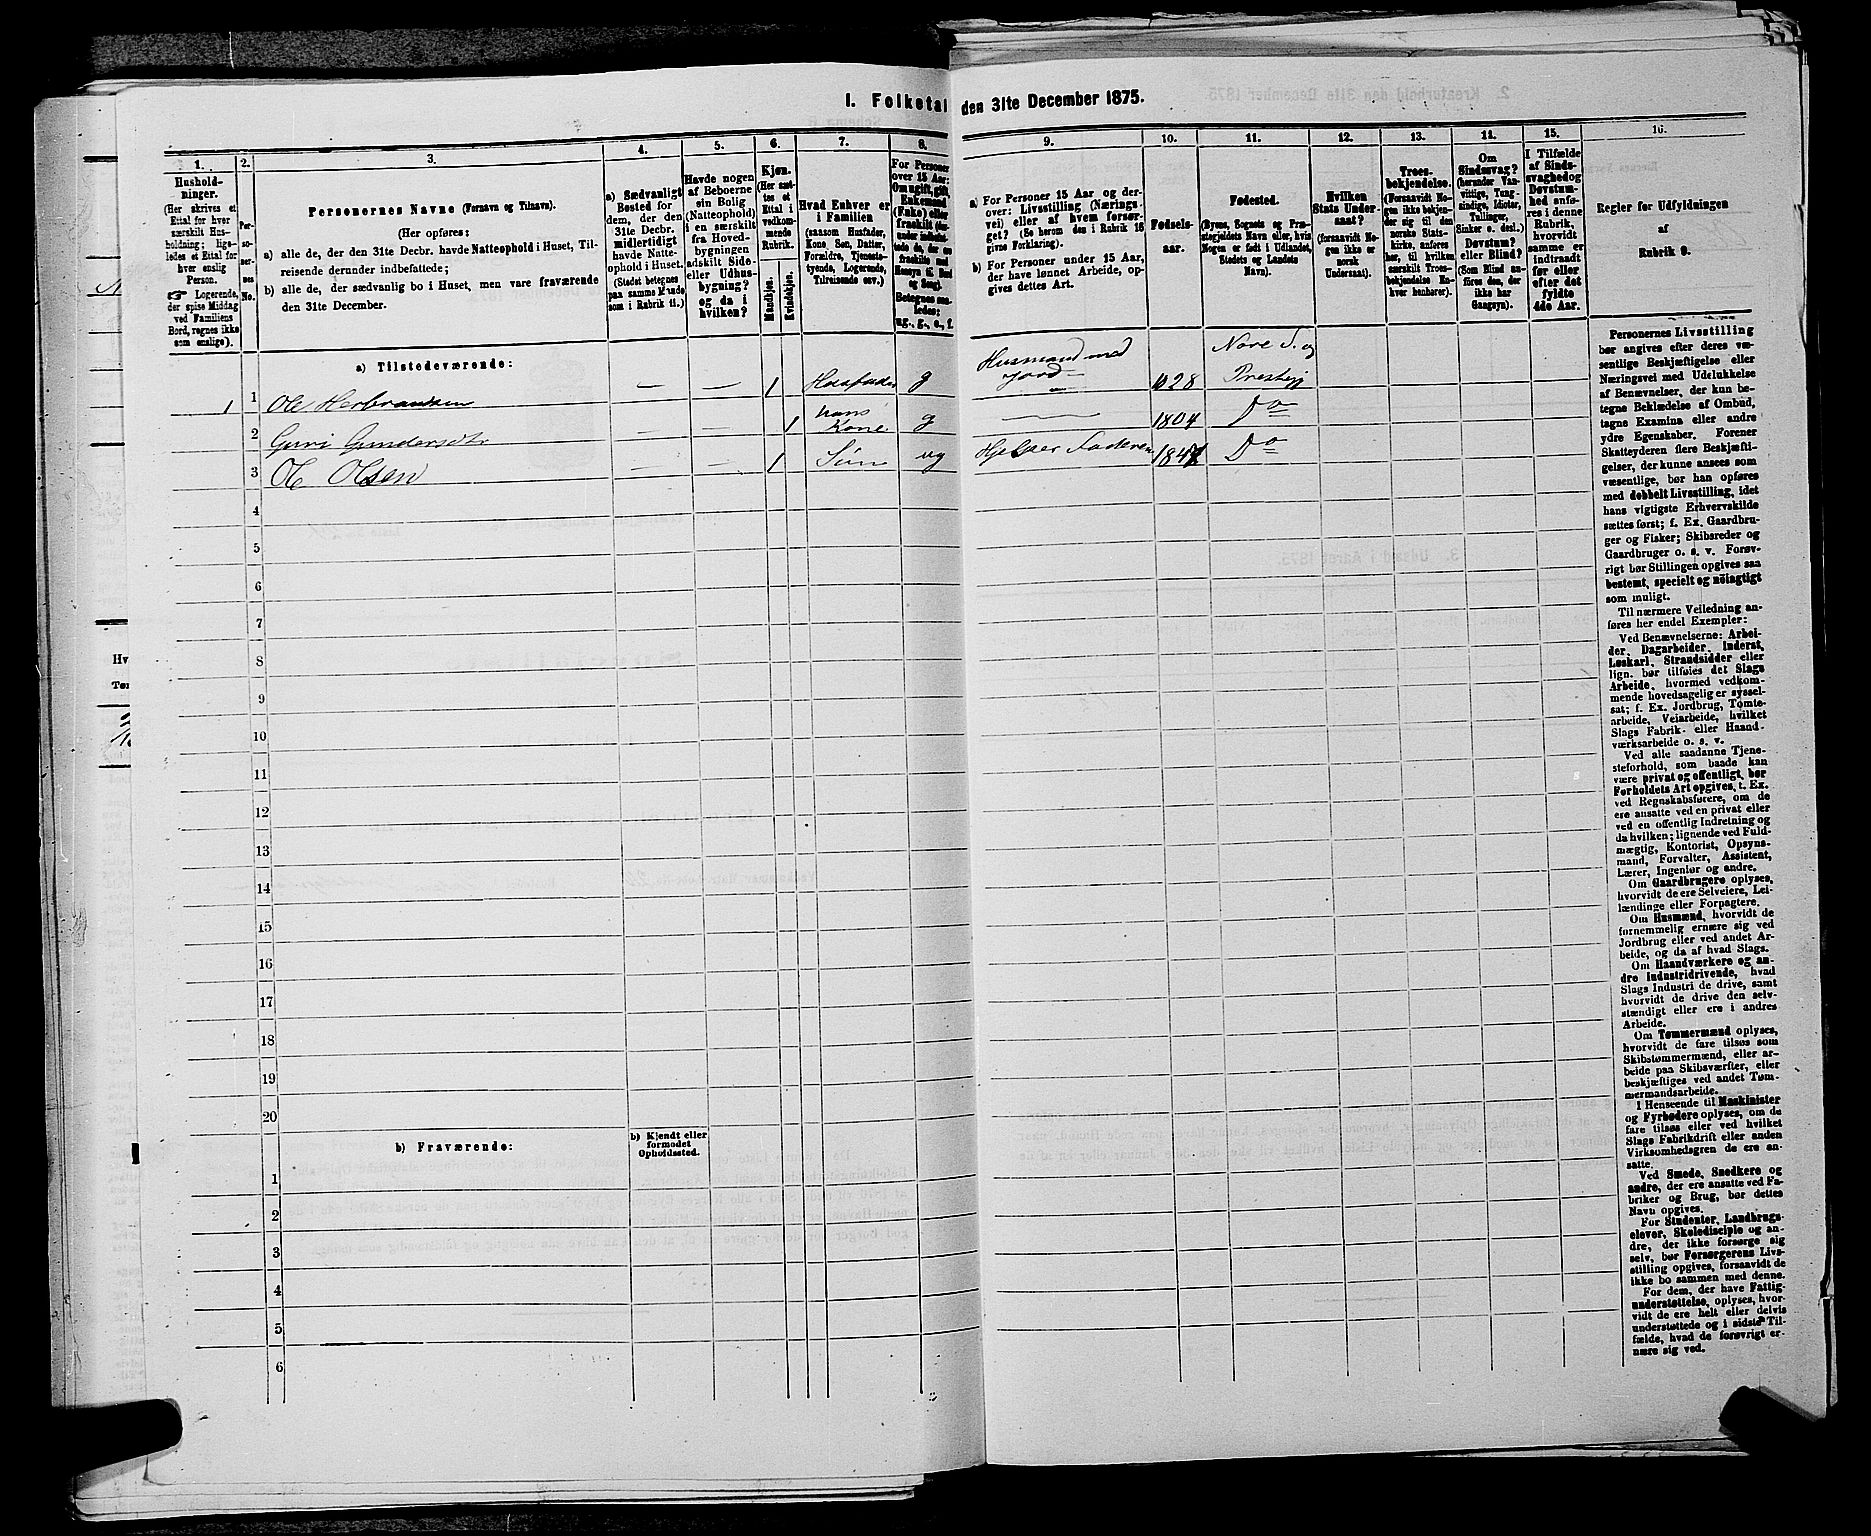 I. Folketal den 31te December 1875.
1.
Hushold-
ninger.
(Her skrives et
Ettal for hver
særskilt Hus-
holdning; lige-
ledes et Ettal for
hver enslig
Person.
Logerende,
der spise Middag
ved Familiens
Bord, regnes ikke
som enslige).
2.
Per-
so-
ner-
nes
No.
3.
Personernes Navne (Fornavn og Tilnavn).
(Her opføres:
a) alle de, der den 31te Decbr. havde Natteophold i Huset, Til-
reisende derunder indbefattede;
b) alle de, der sædvanlig bo i Huset, men vare fraværende
den 31te December.
4.
a) Sædvanligt
Bosted for
dem, der den
31te Decbr.
midlertidigt
havde Natte-
ophold i Huset.
(Stedet betegnes
paa samme Maade
som i Rubrik 11.)
5.
Havde nogen
af Beboerne
sin Bolig
(Natteophold)
i en særskilt
fra Hoved-
bygningen
adskilt Side-
eller Udhus-
bygning?
og da i
hvilken?
6.
Kjøn.
(Her sæt-
tes et
Ettal i
vedkom-
mende
Rubrik.
Mandkjøn.
Kvindekjøn.
7.
Hvad Enhver er
i Familien
(saasom Husfader,
Kone, Søn, Datter,
Forældre, Tjeneste-
tyende, Logerende,
Tilreisende osv.)
8.
For Personer
over 15 Aar:
Om ugift, gift,
Enkemand
(Enke) eller
fraskilt
Betegnes saa-
ledes:
ug., g., e., f.
9.
a) For Personer 15 Aar og der-
over: Livsstilling (Nærings-
vei) eller af hvem forsør-
get? (Se herom des i Rubrik 16
givne Forklaring).
b) For Personer under 15 Aar,
der have lønnet Arbeide, op-
gives dettes Art.
10.
Fødsels-
aar.
11.
Fødested.
(Byens, Sognets og Præ-
stegjeldets Navn eller, hvis
Nogen er født i Udlandet,
Stedets og Landets
Navn).
12.
Hvilken
Stats Under-
saat?
(forsaavidt No-
gen ikke er
norsk
Undersaat).
13.
Troes-
bekjendelse.
(Forsaavidt No-
gen ikke bekjen-
der sig til den
norske Stats-
kirke, anføres
her, til hvilken
særskilt Troes-
bekjendelse En-
hver henhører).
14.
Om
Sindssvag?
(herunder Van-
vittige, Tung-
sindige, Idioter,
Tullinger,
Sinker o. desl.)
Døvstum?
eller Blind?
(Som Blind an-
føres den, der
ikke har
Gangsyn).
15.
I Tilfælde
af Sinds-
svaghed og
Døvstum-
hed anfø-
res i denne
Rubrik,
hvorvidt
samme er
indtraadt
før eller
efter det
fyldte
4de Aar.
16.
Regler for Udfyldningen
af
Rubrik 9.
a) Tilstedeværende:
1 1 Ole Herbrandsen — — 1 Husfader g Husmand med Jord 1828 Nore S. og Prestegj
2 Guri Gundersdtr — — 1 hans Kone g — 1804 Do
3 Ole Olsen — — 1 Søn ug Hjelper Faderen 1847 Do
4
5
6
7
8
9
10
11
12
13
14
15
16
17
18
19
20
b) Fraværende:
b) Kjendt eller
formodet
Opholdssted.
1
2
3
4
5
6
Personernes Livsstilling
bør angives efter deres væ-
sentlige Beskjæftigelse eller
Næringsvei med Udelukkelse
af Benævnelser, der kun be-
tegne Beklædelse af Ombud,
tagne Examina eller andre
ydre Egenskaber. Forener
Skatteyderen flere Beskjæfti-
gelser, der kunne ansees som
væsentlige, bør han opføres
med dobbelt Livsstilling, idet
hans vigtigste Erhvervskilde
sættes først; f. Ex. Gaardbru-
ger og Fisker; Skibsreder og
Gaardbruger o. s. v. Forøv-
rigt bør Stillingen opgives saa
bestemt, specielt og nøiagtigt
som muligt.
Til nærmere Veiledning an-
føres her endel Exempler:
Ved Benævnelserne: Arbei-
der, Dagarbeider, Inderst,
Løskarl, Strandsidder eller
lign. bør tilføies det Slags
Arbeide, hvormed vedkom-
mende hovedsagelig er syssel-
sat; f. Ex. Jordbrug, Tømte-
arbeide, Veiarbeide, hvilket
Slags Fabrik- eller Haand-
værksarbeide o. s. v.
Ved alle saadanne Tjene-
steforhold, som baade kan
være privat og offentligt, bør
Forholdets Art opgives, t. Ex.
ved Regnskabsførere, om de
ere ansatte ved en privat eller
ved en offentlig Indretning og
da hvilken; lignende ved Fuld-
mægtig, Kontorist, Opsyns-
mand, Forvalter, Assistent,
Lærer, Ingeniør og andre.
Om Gaardbrugere oplyses,
hvorvidt de ere Selveiere, Lei-
lændinge eller Forpagtere.
Om Husmænd, hvorvidt de
fornemmelig ernære sig ved
Jordbrug eller ved andet Ar-
beide, og da af hvad Slags.
Om Haandværkere og an-
dre Industridrivende, hvad
Slags Industri de drive, samt
hvorvidt de drive den selv-
stændigt eller ere i andres
Arbeide.
Om Tømmermænd oplyses,
hvorvidt de fare tilsøs som
Skibstømmermænd, eller ar-
beide paa Skibsværfter, eller
beskjæftiges ved andet Tøm-
mermandsarbeide.
I Henseende til Maskinister
og Fyrbødere oplyses, om de
fare tilsøs eller ved hvilket
Slags Fabrikdrift eller anden
Virksomhedsgren de ere an-
satte.
Ved Smede, Snedkere og
andre, der ere ansatte ved Fa-
briker og Brug, bør dettes
Navn opgives.
For Studenter, Landbrugs-
elever, Skoledisciple og an-
dre, der ikke forsørge sig
selv, bør Forsørgerens Livs-
stilling opgives, forsaavidt de
ikke bo sammen med denne.
For dem, der have Fattig-
understøttelse, oplyses, hvor-
vidt de ere helt eller delvis
understøttede og i sidste Til-
fælde, hvad de forøvrigt er-
nære sig ved.